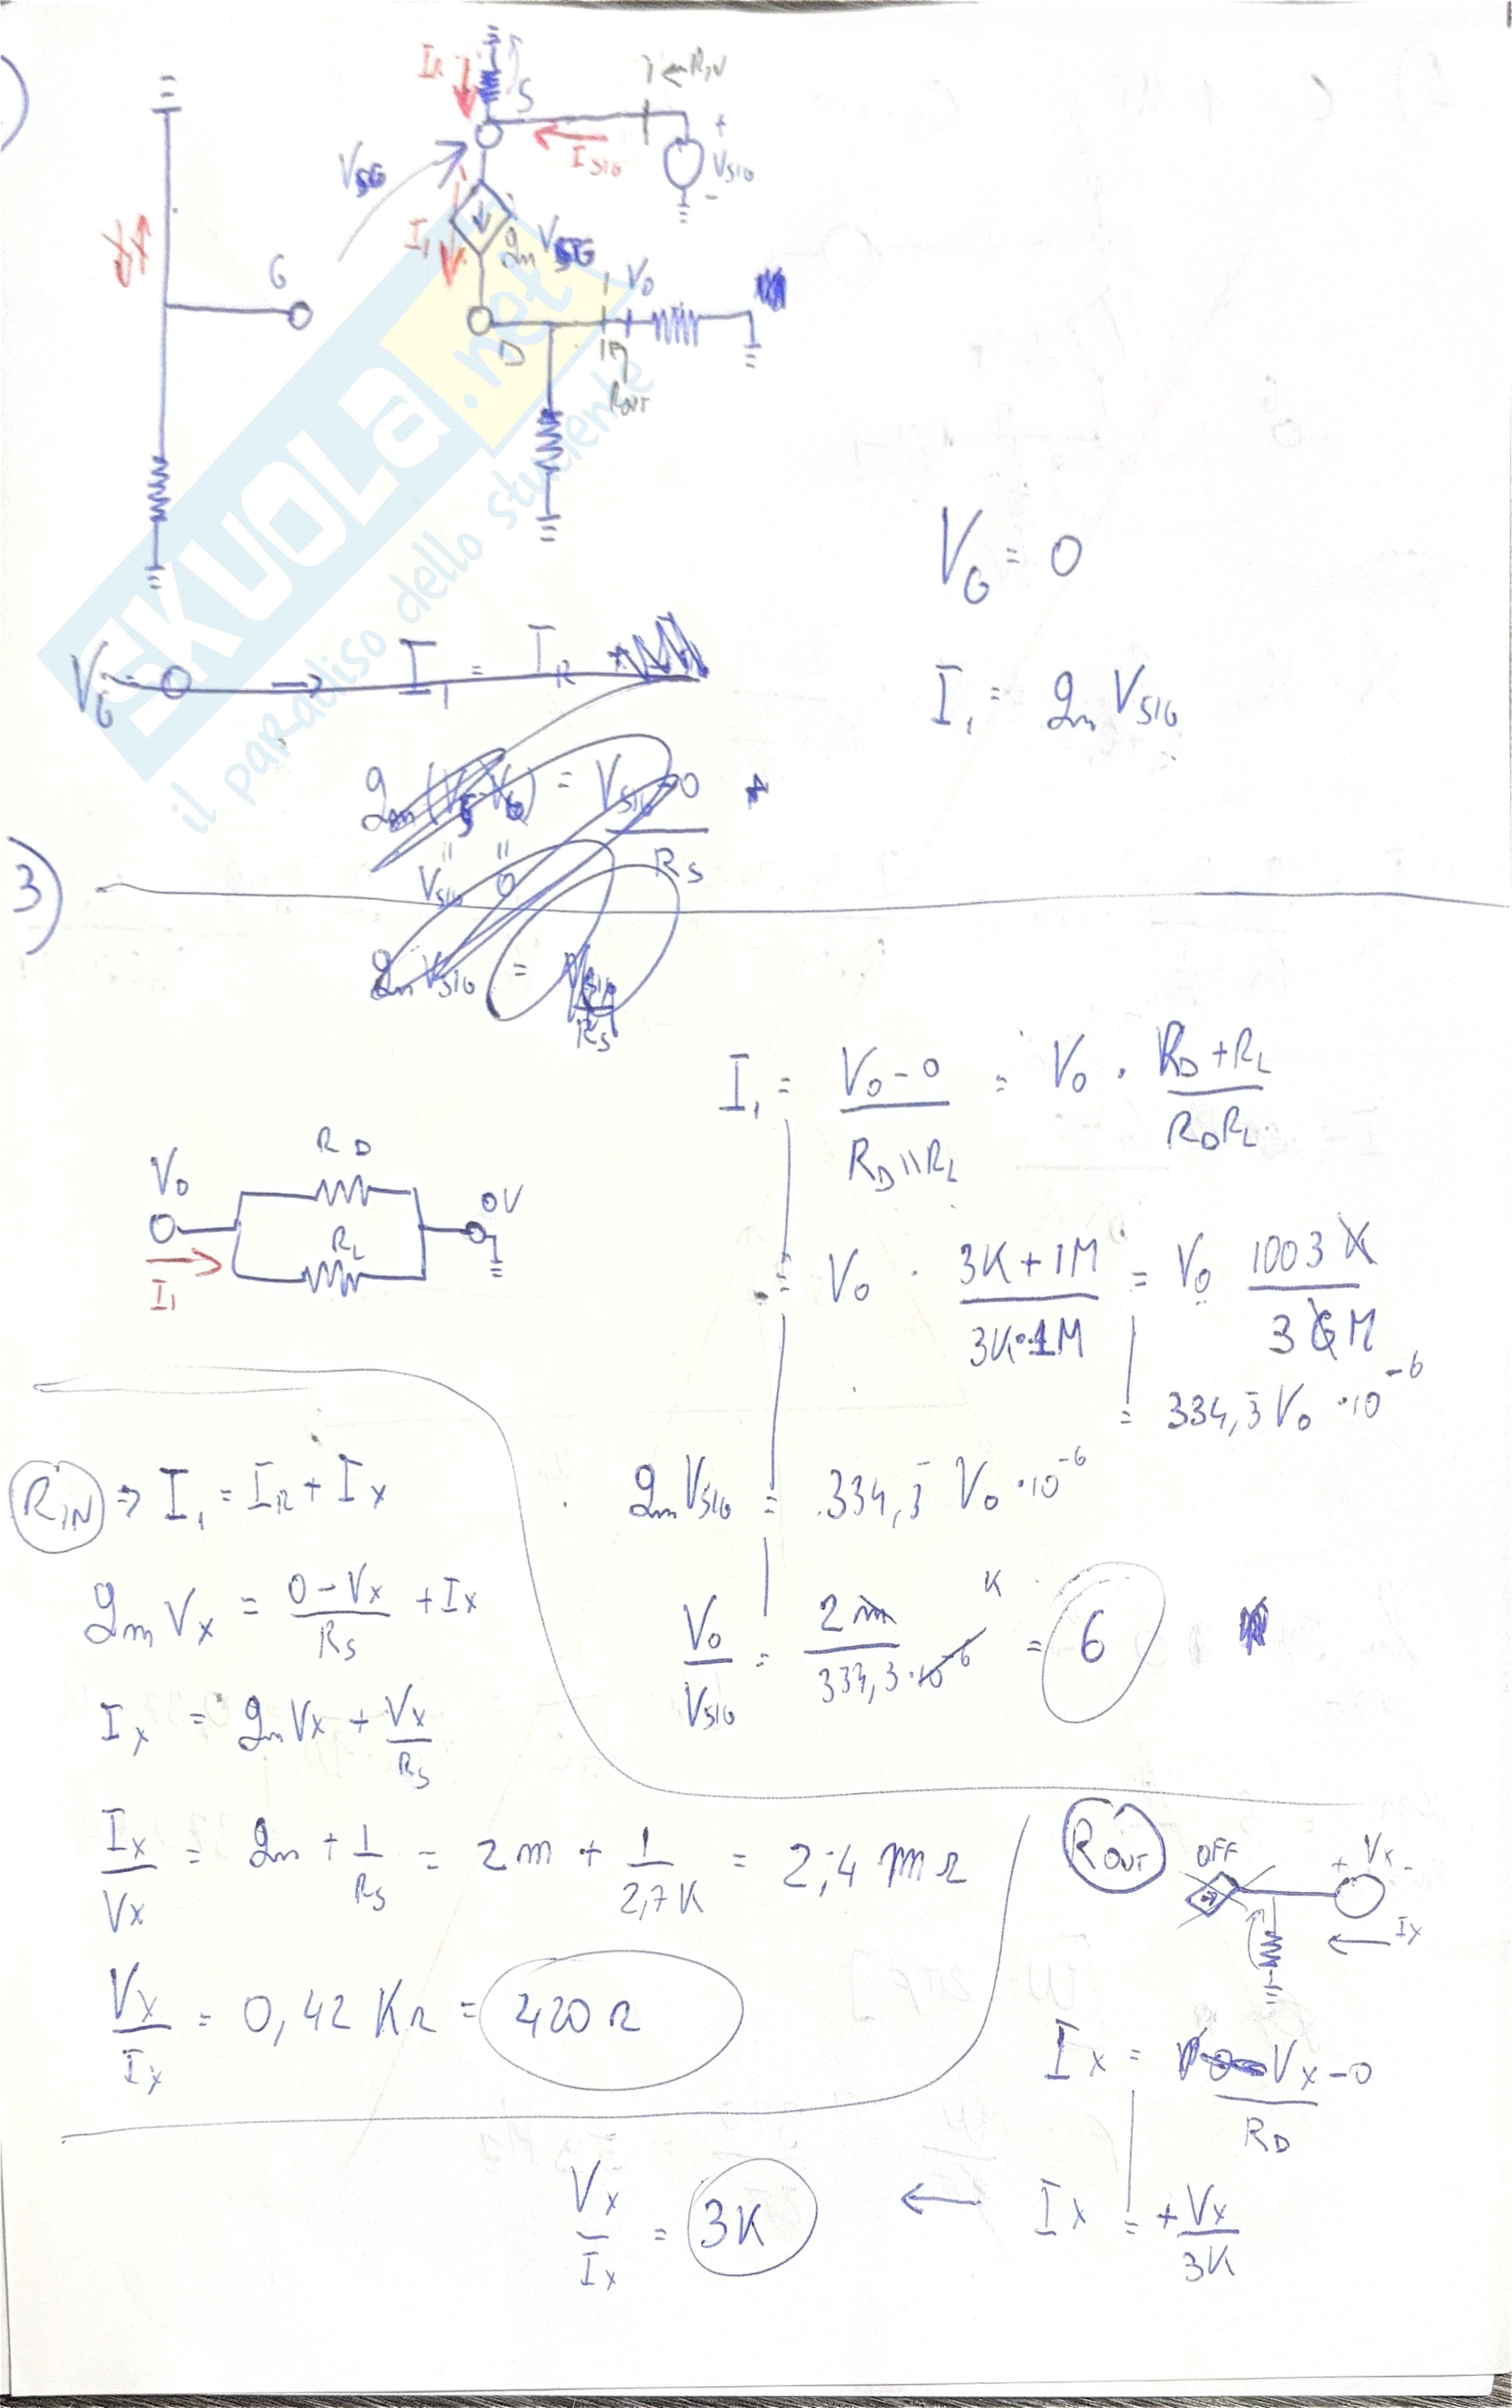 )
I_R
S
← R_IN
+
V_SIG
-
I_SIG
V_SG
I_1
g_m V_SG
G
D
V_O
R_OUT
SKUOLA.net
il paradiso dello studente
V_G = 0
I_1 = g_m V_SIG
V_G = 0 → I_1 = I_R
g_m (V_S - V_G) = (V_SIG - 0) / R_S
V_SIG 0
g_m V_SIG = V_SIG / R_S
3)
I_1 = (V_O - 0) / (R_D || R_L) = V_O · (R_D + R_L) / (R_D R_L)
R_D
V_O
0V
R_L
I_1
= V_O · (3K + 1M) / (3K · 1M) = V_O 1003 K / 3 G M
= 334,3 V_O · 10^-6
R_IN ⇒ I_1 = I_R + I_X
g_m V_SIG = 334,3 V_O · 10^-6
g_m V_X = (0 - V_X) / R_S + I_X
V_O / V_SIG = 2 m / 334,3 · 10^-6 K = 6
I_X = g_m V_X + V_X / R_S
I_X / V_X = g_m + 1 / R_S = 2 m + 1 / 2,7 K = 2,4 m Ω
R_OUT
OFF
+ V_X -
I_X
V_X / I_X = 0,42 KΩ = 420 Ω
I_X = (V_X - 0) / R_D
V_X / I_X = 3K ← I_X = + V_X / 3K